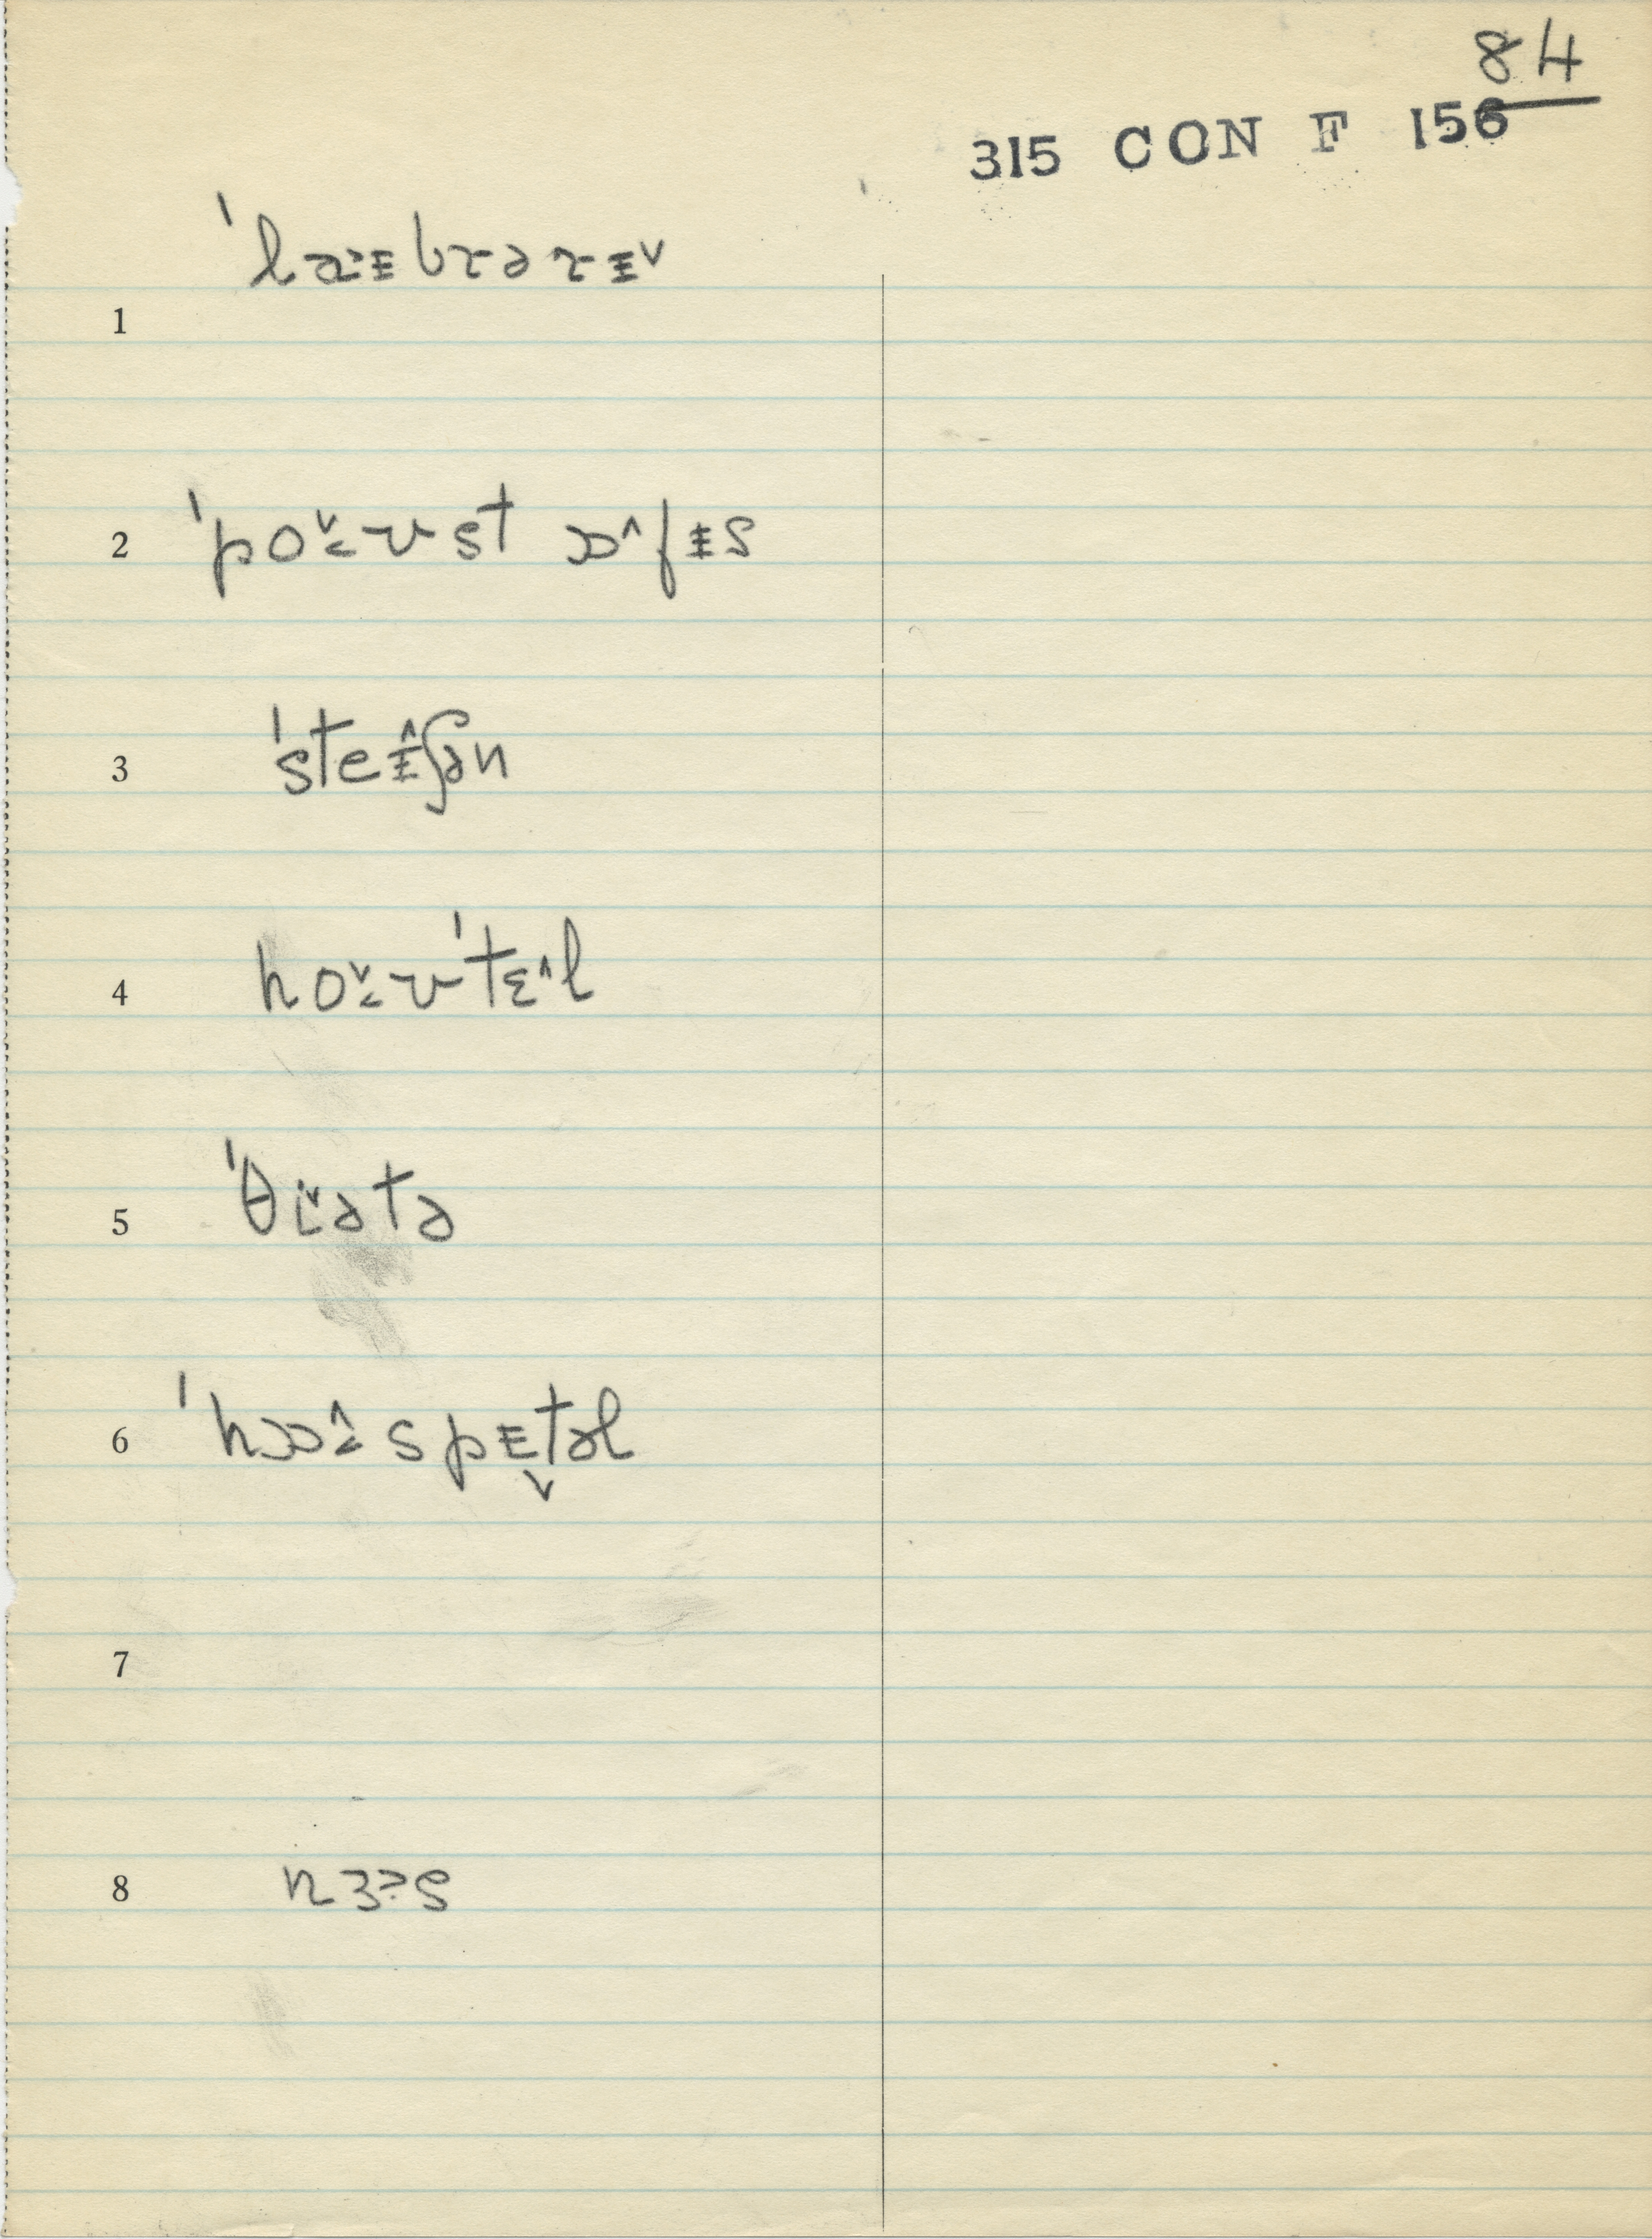 84
315 CON F 156
ˈlaᵻbrərᵻ˅
1
2 ˈpo˅˂ʊst ɒ˄fᵻs
3 ˈsteᵻ˄ʃən
4 ho˅˂ʊˈtɛ˄l
5 ˈθi˅ətə
6 ˈhɒ˄˂spᵻ˅təl
7
8 nɜˀs